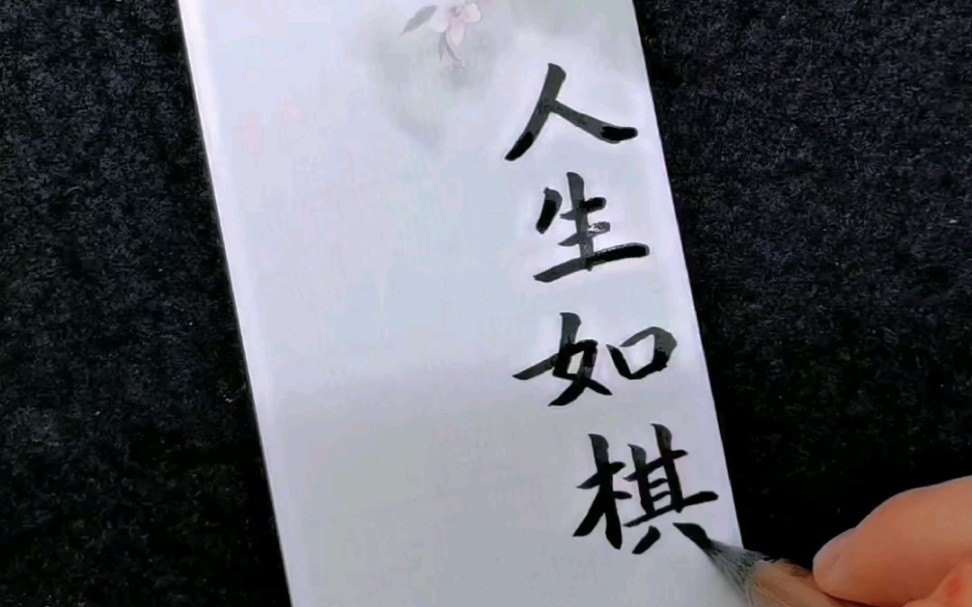 人生如棋